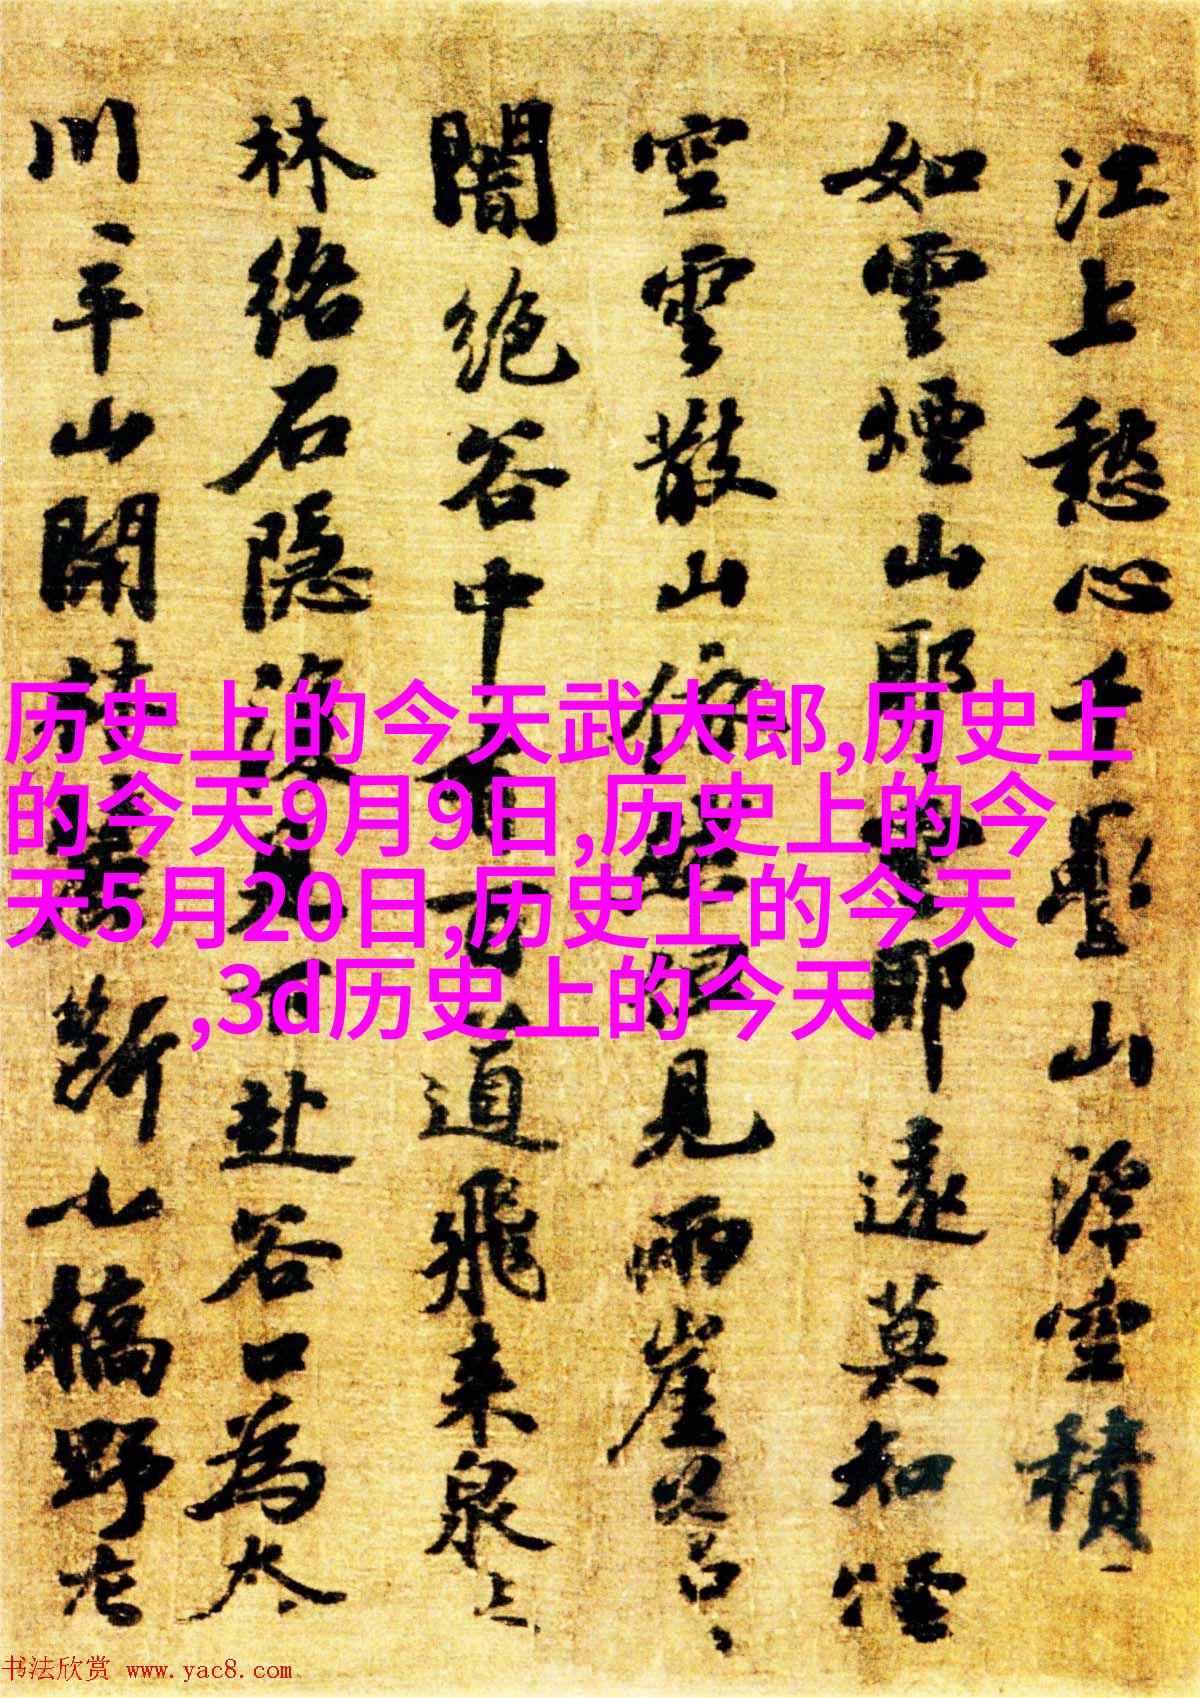 江上愁心千疊山浮空積
如雲煙山耶雲耶遠莫知煙
空雲散山依然但見兩崖蒼
闇絶谷中有百道飛來泉
林絡石隱復見下赴谷口為奔
川平山開林麓斷小橋野店
历史上的今天武大郎,历史上
的今天9月9日,历史上的今
天5月20日,历史上的今天
,3d历史上的今天
书法欣赏 www.yac8.com